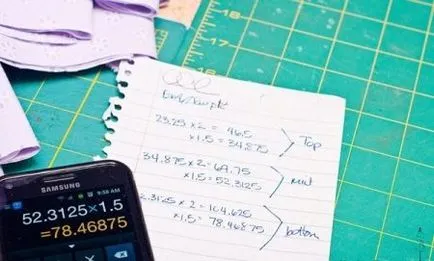 18
17
23.25 x 2 = 46.5
x 1.5 = 34.875
Top
34.875 x 2 = 69.75
x 1.5 = 52.3125
mid
52.3125 x 2 = 104.625
x 1.5 = 78.46875
bottom
SAMSUNG
9:58 AM
52.3125×1.5
=78.46875